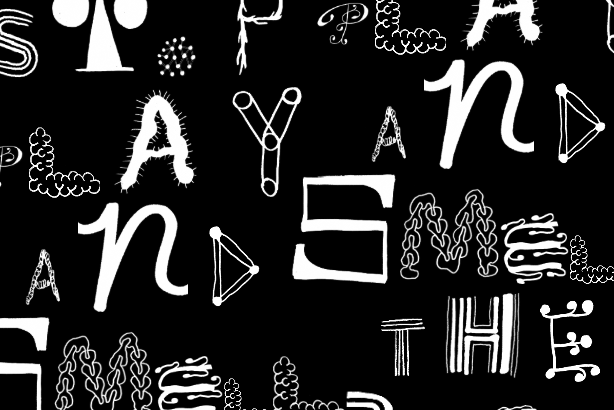 PLA
PLAY AND
AND SMEL
THE
SMELL